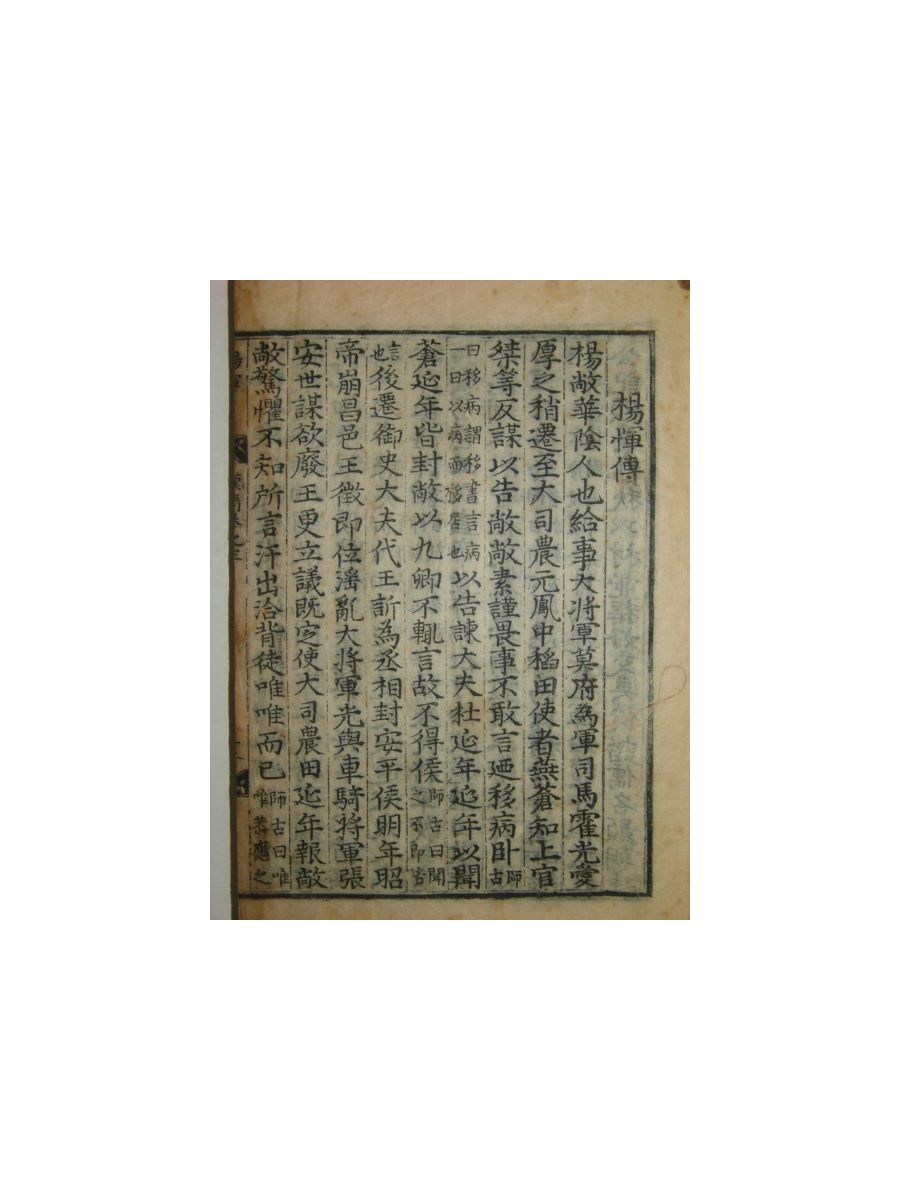 楊惲傳
楊敞華陰人也給事大將軍莫府為軍司馬霍光愛
厚之稍遷至大司農元鳳中稻田使者燕蒼知上官
桀等反謀以告敞敞素謹畏事不敢言廼移病卧師古
曰移病謂移書言病一曰以病而移居也以告諫大夫杜延年延年以聞
蒼延年皆封敞以九卿不輒言故不得侯師古曰聞之不即告
言也後遷御史大夫代王訢為丞相封安平侯明年昭
帝崩昌邑王徵即位滛亂大將軍光與車騎將軍張
安世謀欲廢王更立議既定使大司農田延年報敞
敞驚懼不知所言汗出洽背徒唯唯而已師古曰唯唯恭應之